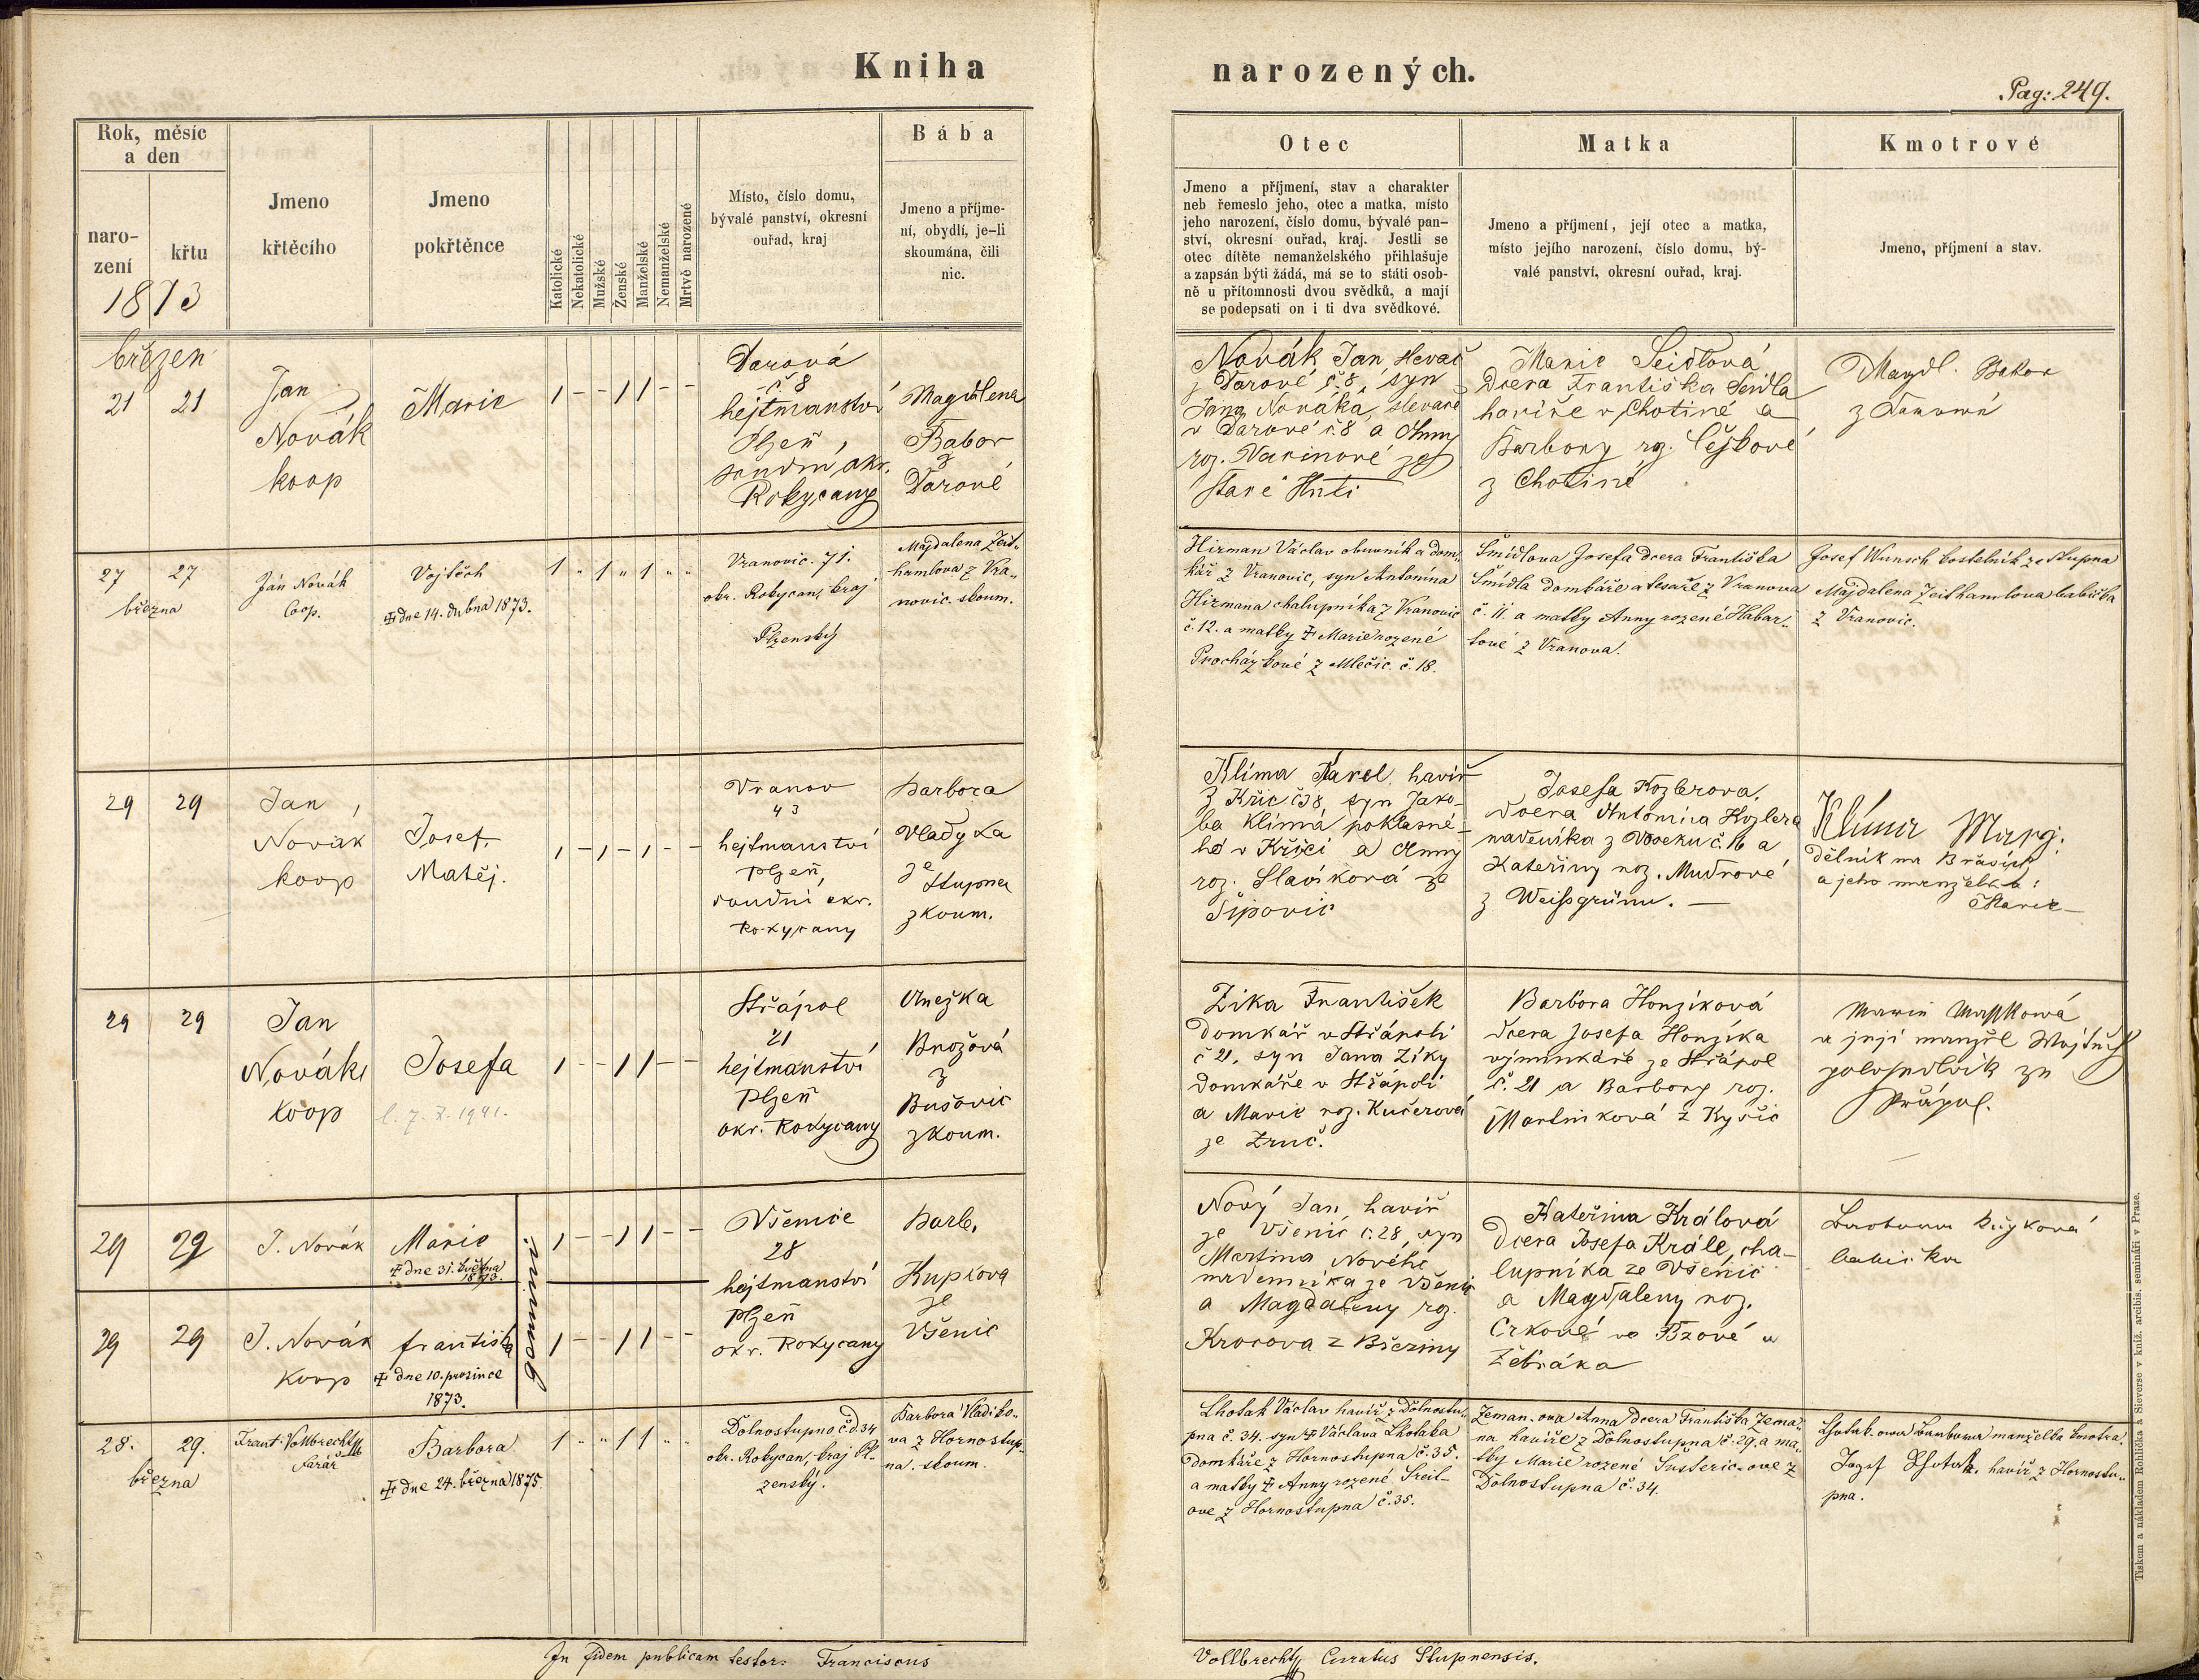 Kniha narozených.
Pag: 249.
Rok, měsíc
a den
naro-
zení
křtu
1873
Jmeno
křtěcího
Jmeno
pokřtěnce
Katolické
Nekatolické
Mužské
Ženské
Manželské
Nemanželské
Mrtvě narozené
Místo, číslo domu,
bývalé panství, okresní
ouřad, kraj
Bába
Jmeno a příjme-
ní, obydlí, je-li
skoumána, čili
nic.
Otec
Jmeno a příjmení, stav a charakter
neb řemeslo jeho, otec a matka, místo
jeho narození, číslo domu, bývalé pan-
ství, okresní ouřad, kraj. Jestli se
otec dítěte nemanželského přihlašuje
a zapsán býti žádá, má se to státi osob-
ně u přítomnosti dvou svědků, a mají
se podepsati on i ti dva svědkové.
Matka
Jmeno a příjmení, její otec a matka,
místo jejího narození, číslo domu, bý-
valé panství, okresní ouřad, kraj.
Kmotrové
Jmeno, příjmení a stav.
březen
21 21
Jan
Novák
koop
Marie
1 - - 1 1 - -
Darová
č 8
hejtmanství
Plzeň,
soudní okr.
Rokycany
Magdlena
Tabor
z
Darové
Novák Jan, slevač
z Darové č.8, syn
Jana Nováka, slevače
v Darové č.8 a Anny
roz. ze
Staré Huti
Marie Seidlová
dcera Františka Seidla
havíře v Chotiné a
Barbory rz. Čejkové
z Chotiné
Magdl. Babor
z Darowé
27 27
března
Ján Novák
Coop.
Vojtěch
dne 14. dubna 1873.
1 " 1 " 1 " "
Vranovic. 71.
okr. Rokycan, kraj
Plzenský
Majdalena Zeit-
hamlova z Vra-
novic. skoum.
Hirman Václav obuvník a dom-
kář z Vranovic, syn Antonína
Hirmana chalupníka z Vranovic
č. 12. a matky Marie rozené
Procházkové z Mlečic. č. 18.
Šmídlova Josefa dcera Františka
Šmídla domkáře a tesaře z Vranova
č. 11. a matky Anny rozené Habar-
tové z Vranova.
Josef Wunsch kostelník ze Stupna
Majdalena Zeithamlova babička
z Vranovic.
29 29
Jan
Novák
koop
Josef,
Matěj.
1 - 1 - 1 - -
Vranov
43
hejtmanství
Plzeň,
soudní okr.
Rokycany
Barbora
Vladyka
ze
Stupna
zkoum.
Klíma Karel, havíř
z Křic č38, syn Jako-
ba Klímá poklasné-
ho v Křici a Anny
roz. Slavíková ze
Šipovic
Josefa Kozlerova,
dcera Antonína Kozlera
nádeníka z Voseku č. 16 a
Kateřiny roz. Mudrové
z Weißgrünu.
Klíma
dělník na Břasích
a jeho manželka:
Marie
29 29
Jan
Novák
koop
Josefa
1 - - 1 1 - -
Střápol
21
hejtmanství
Plzeň
okr. Rokycany
Anežka
Brožová
z
Bušovic
zkoum.
Zíka František
domkář v Střápoli
č 21, syn Jana Zíky
domkáře v Střápoli
a Marie roz. Kučerová
ze Zruč.
Barbora Honzíková
dcera Josefa Honzíka
výminkáře ze Střápol
č. 21 a Barbory roz.
Martínková z Kyšic
a její manžel Wojtěch
29 29
J. Novák
Marie
dne 31. května
1873.
1 - - 1 1 - -
29 29
J. Novák
koop
františka
dne 10. prosince
1873.
1 - - 1 1 - -
Všenice
28
hejtmanství
Plzeň
okr. Rokycany
Barb.
Kupkova
ze
Všenic
Nový Jan, havíř
ze Všenic č.28, syn
Martina Nového
nádenníka ze Všenic
a Magdaleny rz.
Krocova z Březiny
Kateřina Králová
dcera Josefa Krále, cha-
lupníka ze Všenic
a Magdaleny roz.
Crkové ve Bzové u
Žebráka
28. 29.
března
Frant. Vollbrecht
farář
Barbora
dne 24. března 1875.
1 " " 1 1 " "
Dolnostupno č.d.34
okr. Rokycan, kraj Pl-
zenský.
Barbora Vladiko-
va z Hornostup-
na. skoum.
Lhotak Václav havíř z Dolnostu-
pna č. 34. syn Václava Lhotaka
domkáře z Hornostupna č. 35.
a matky Anny rozené Sreit-
ove z Hornostupna č. 35.
Zeman-ova Anna dcera Františka Zema-
na havíře z Dolnostupna č. 29. a ma-
tky Marie rozené Susteric-ove z
Dolnostupna č. 34.
Lhotak-owa Barbora manželka kmotra.
Josef Lhotak. havíř z Hornostu-
pna.
In fidem publicam testor: Franciscus Vollbrecht Curatus Stupnensis.
Tiskem a nákladem Rohlíčka a Sieverse v kníž. arcibis. semináři v Praze.